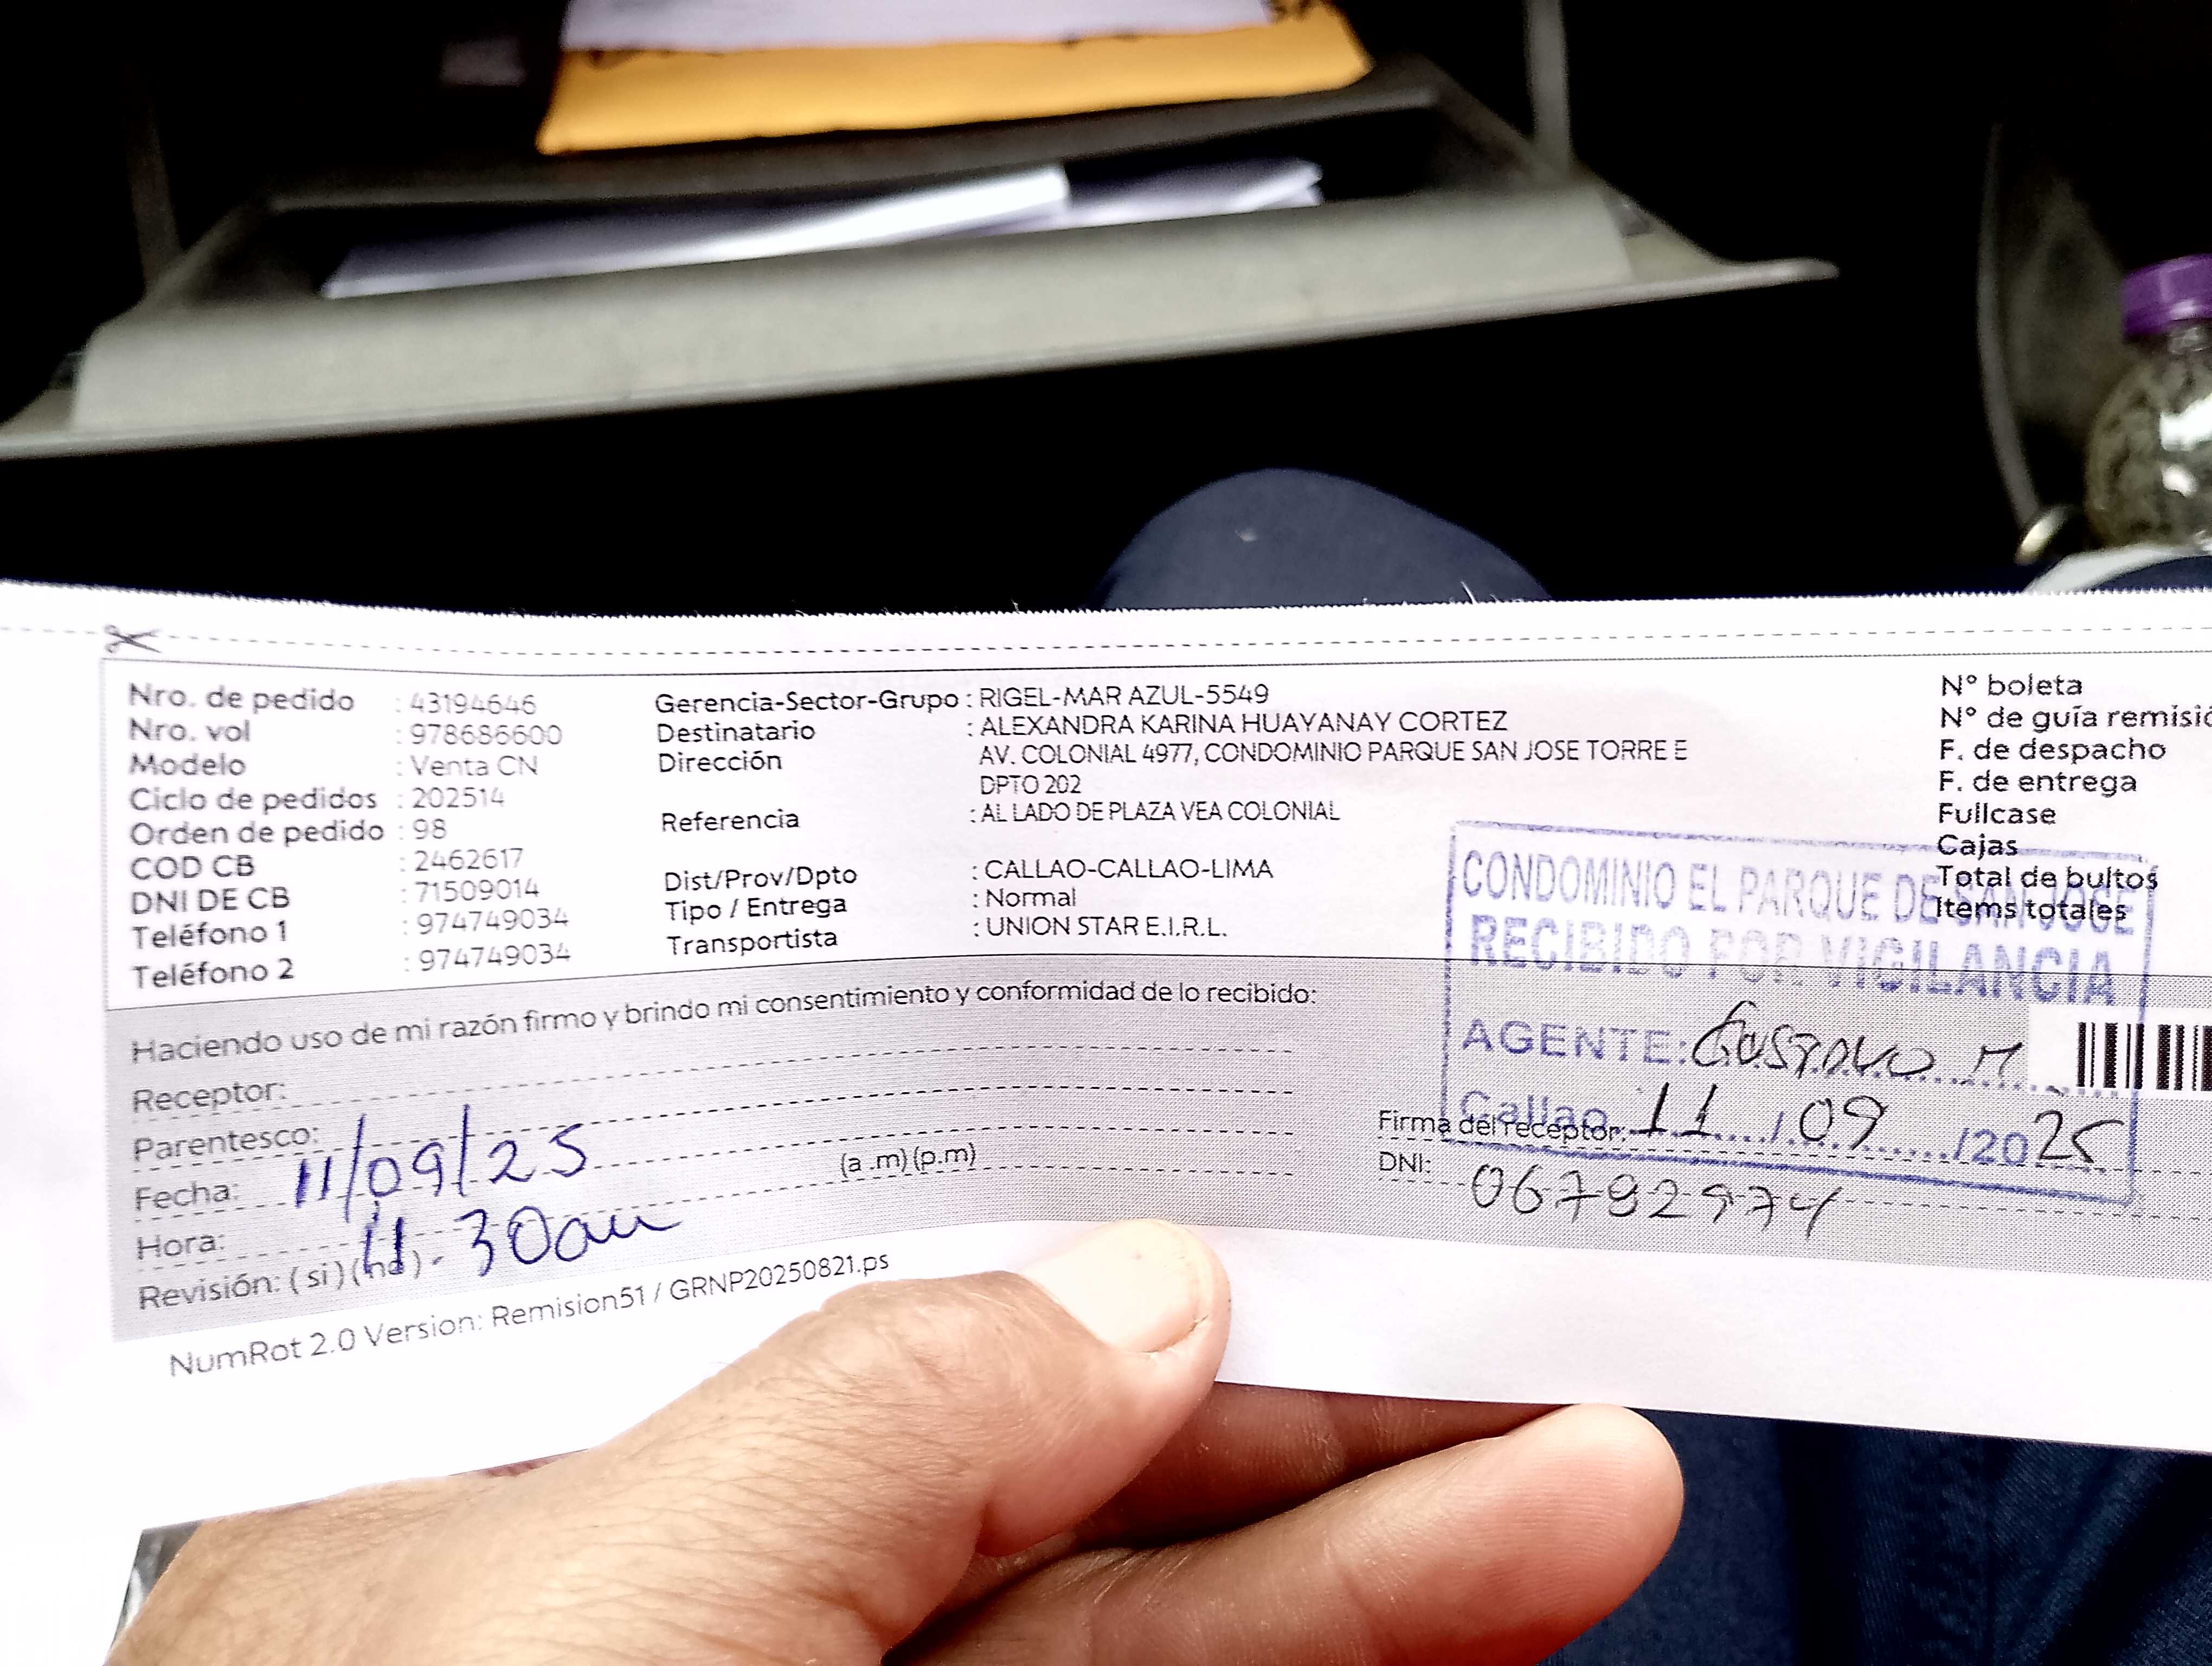 Nro. de pedido : 43194646
Nro. vol : 978686600
Modelo : Venta CN
Ciclo de pedidos : 202514
Orden de pedido : 98
COD CB : 2462617
DNI DE CB : 71509014
Teléfono 1 : 974749034
Teléfono 2 : 974749034
Gerencia-Sector-Grupo : RIGEL-MAR AZUL-5549
Destinatario : ALEXANDRA KARINA HUAYANAY CORTEZ
Dirección AV. COLONIAL 4977, CONDOMINIO PARQUE SAN JOSE TORRE E
DPTO 202
Referencia : AL LADO DE PLAZA VEA COLONIAL
Dist/Prov/Dpto : CALLAO-CALLAO-LIMA
Tipo / Entrega : Normal
Transportista : UNION STAR E.I.R.L.
N° boleta
N° de guía remisió
F. de despacho
F. de entrega
Fullcase
Cajas
Total de bultos
Items totales
CONDOMINIO EL PARQUE DE SAN JOSE
RECIBIDO POR VIGILANCIA
AGENTE: Gustavo M
Callao 11 / 09 /2025
Haciendo uso de mi razón firmo y brindo mi consentimiento y conformidad de lo recibido:
Receptor:
Parentesco:
Fecha: 11/09/25
Hora: 11.30am (a.m)(p.m)
Revisión: (si)(no)
Firma del receptor:
DNI:
NumRot 2.0 Version: Remision51 / GRNP20250821.ps